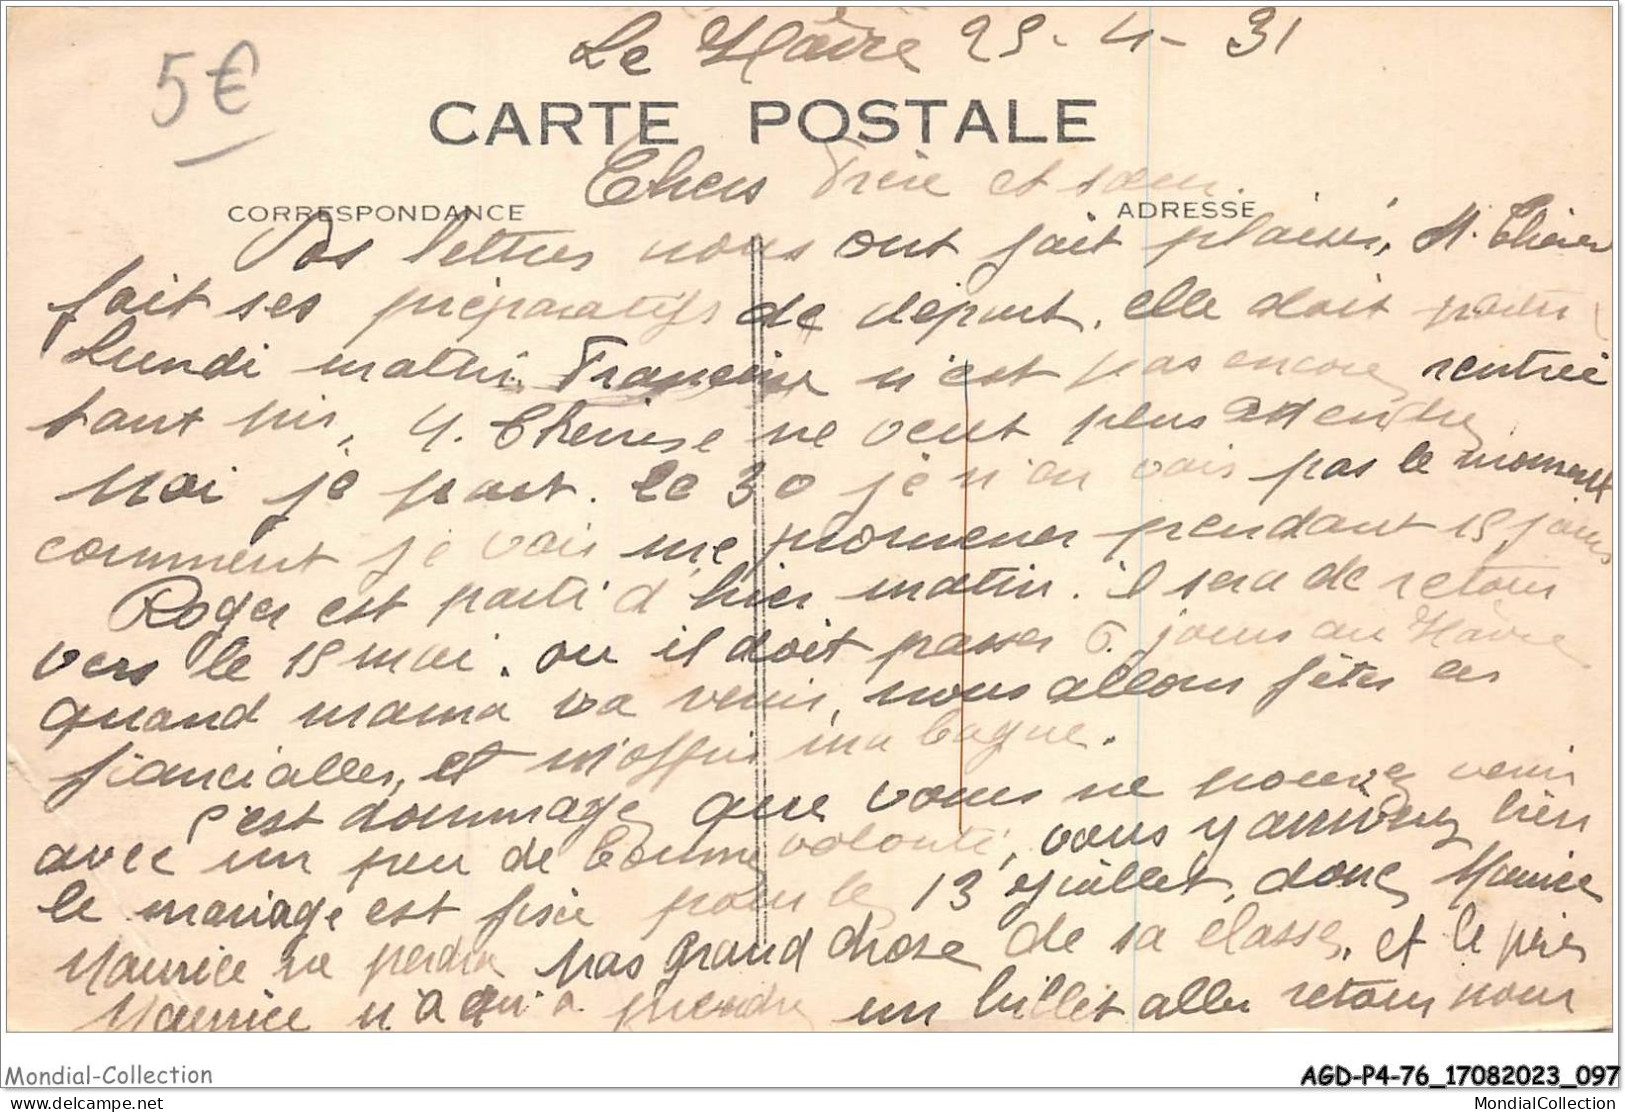 Le Hâvre 25-4-31
5€
CARTE POSTALE
Chers Frère et sœur.
CORRESPONDANCE
ADRESSE
Vos lettres nous ont fait plaisir, M. Thérèse
fait ses préparatifs de départ, elle doit partir
Lundi matin. Françoise n'est pas encore rentrée
tant pis, M. Thérèse ne veut plus attendre
Moi je part. le 30 je n'en vois pas le moment
comment je vais me promener pendant 15 jours
Roger est parti d'hier matin. il sera de retour
vers le 15 mai. ou il doit passer 6. jours au Hâvre
quand mama va venir, nous allons fêter les
fiancialles, et m'offrir ma bague.
c'est dommage que vous ne pouvez venir
avec un peu de bonne volonté, vous y arrivez bien
le mariage est fixé pour le 13 Juillet, donc Maurice
Maurice ne perdra pas grand chose de sa classe, et le père
Maurice n'a qu'a prendre un billet aller retour pour
Mondial-Collection
AGD-P4-76_17082023_097
www.delcampe.net
MondialCollection